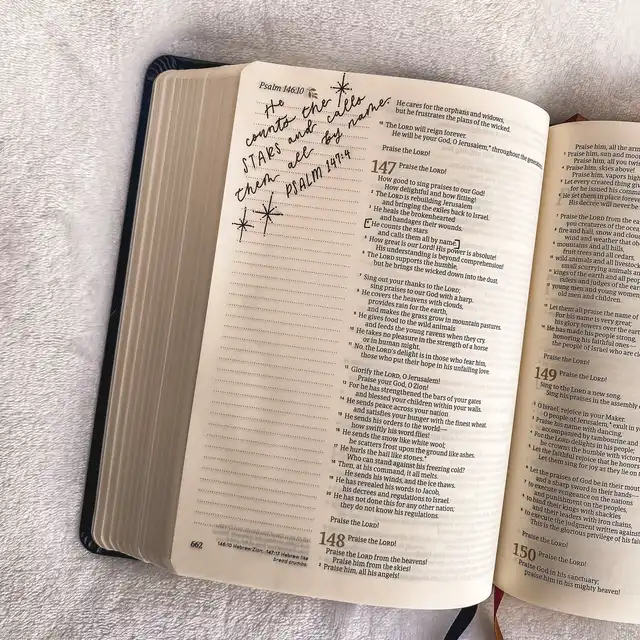 Psalm 146:10
He
counts the
STARS and calls
them all by name.
PSALM 147:4
He cares for the orphans and widows,
but he frustrates the plans of the wicked.
10 The LORD will reign forever.
He will be your God, O Jerusalem,* throughout the generations.
Praise the LORD!
147 Praise the LORD!
How good to sing praises to our God!
How delightful and how fitting!
2 The LORD is rebuilding Jerusalem
and bringing the exiles back to Israel.
3 He heals the brokenhearted
and bandages their wounds.
4 He counts the stars
and calls them all by name.
5 How great is our Lord! His power is absolute!
His understanding is beyond comprehension!
6 The LORD supports the humble,
but he brings the wicked down into the dust.
7 Sing out your thanks to the LORD;
sing praises to our God with a harp.
8 He covers the heavens with clouds,
provides rain for the earth,
and makes the grass grow in mountain pastures.
9 He gives food to the wild animals
and feeds the young ravens when they cry.
10 He takes no pleasure in the strength of a horse
or in human might.
11 No, the LORD's delight is in those who fear him,
those who put their hope in his unfailing love.
12 Glorify the LORD, O Jerusalem!
Praise your God, O Zion!
13 For he has strengthened the bars of your gates
and blessed your children within your walls.
14 He sends peace across your nation
and satisfies your hunger with the finest wheat.
15 He sends his orders to the world—
how swiftly his word flies!
16 He sends the snow like white wool;
he scatters frost upon the ground like ashes.
17 He hurls the hail like stones.*
Who can stand against his freezing cold?
18 Then, at his command, it all melts.
He sends his winds, and the ice thaws.
19 He has revealed his words to Jacob,
his decrees and regulations to Israel.
20 He has not done this for any other nation;
they do not know his regulations.
Praise the LORD!
148 Praise the LORD!
Praise the LORD from the heavens!
Praise him from the skies!
2 Praise him, all his angels!
662
146:10 Hebrew Zion. 147:17 Hebrew like
bread crumbs.
Praise him, all the arm
3 Praise him, sun and mo
Praise him, all you twi
4 Praise him, skies above!
Praise him, vapors high
5 Let every created thing gi
for he issued his comman
6 He set them in place forever
His decree will never be
7 Praise the LORD from the ea
you creatures of the ocea
8 fire and hail, snow and clou
wind and weather that ob
9 mountains and all hills,
fruit trees and all cedars,
10 wild animals and all livestock
small scurrying animals an
11 kings of the earth and all peop
rulers and judges of the ear
12 young men and young women
old men and children.
13 Let them all praise the name of
For his name is very great;
his glory towers over the ear
14 He has made his people strong,
honoring his faithful ones—
the people of Israel who are cl
Praise the LORD!
149 Praise the LORD!
Sing to the LORD a new song.
Sing his praises in the assembly
2 O Israel, rejoice in your Maker.
O people of Jerusalem,* exult in y
3 Praise his name with dancing,
accompanied by tambourine a
4 For the LORD delights in his people;
he crowns the humble with victory
5 Let the faithful rejoice that he honors
Let them sing for joy as they lie on t
6 Let the praises of God be in their mou
and a sharp sword in their hands—
7 to execute vengeance on the nations
and punishment on the peoples,
8 to bind their kings with shackles
and their leaders with iron chains,
9 to execute the judgment written against
This is the glorious privilege of his fai
Praise the LORD!
150 Praise the LORD!
Praise God in his sanctuary;
praise him in his mighty heaven!